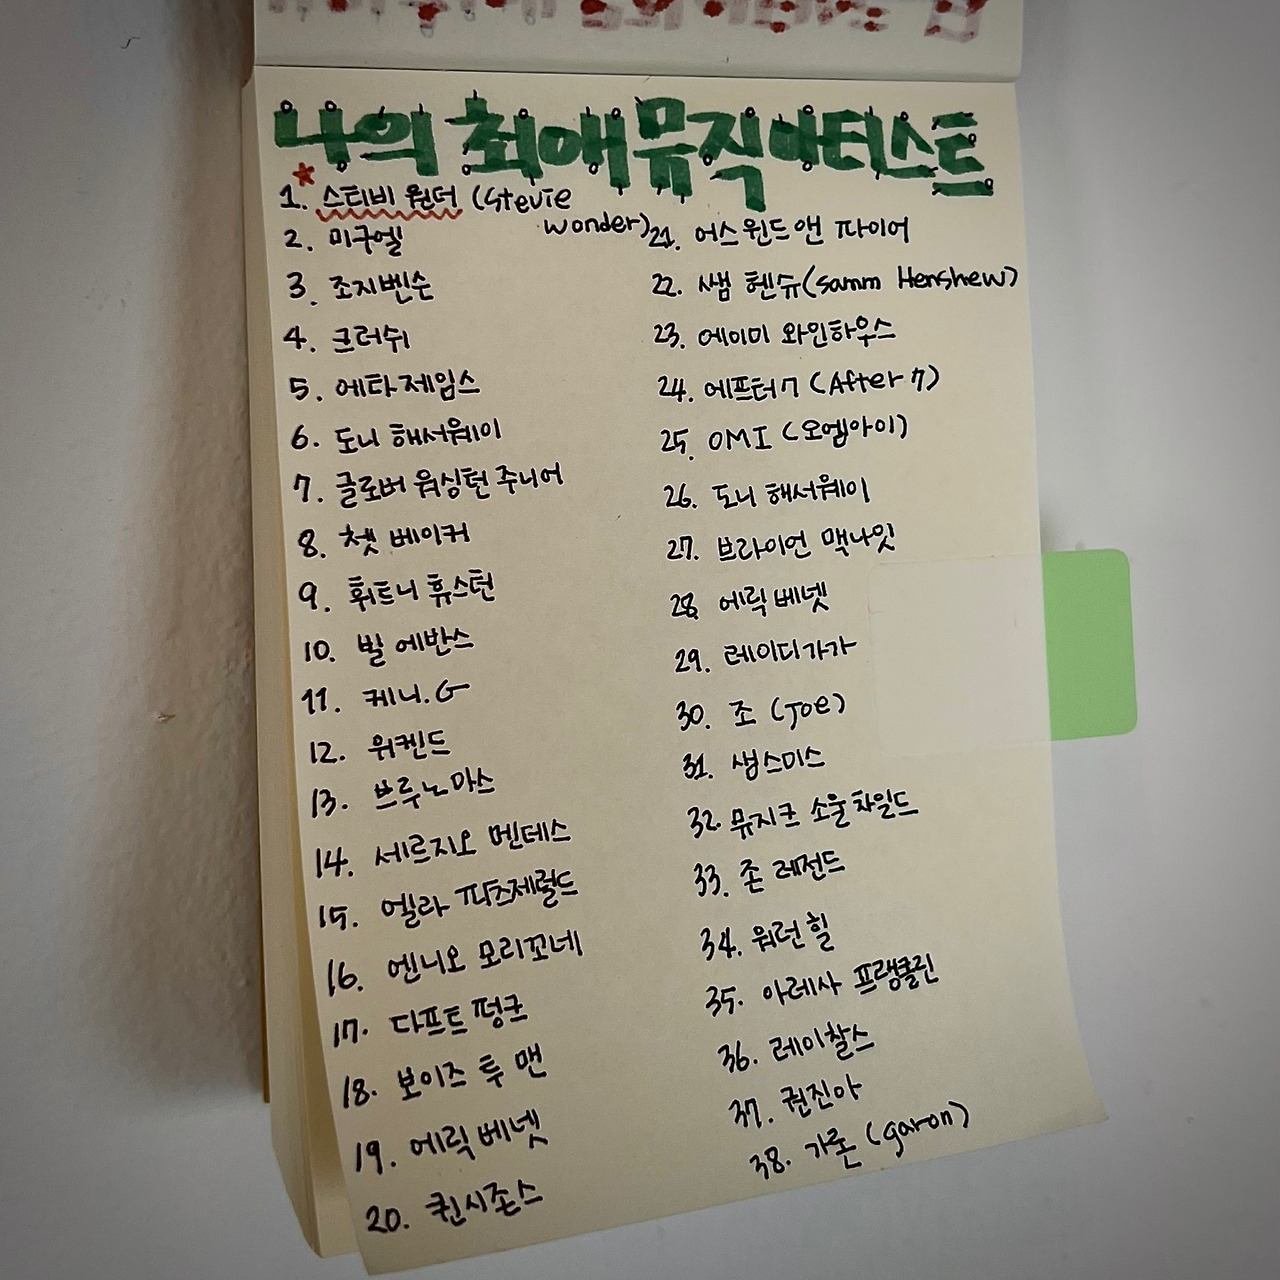 나의 최애 뮤직아티스트
1. 스티비 원더 (Stevie
wonder)
2. 미구엘
3. 조지벤슨
4. 크러쉬
5. 에타 제임스
6. 도니 해서웨이
7. 글로버 워싱턴 주니어
8. 쳇 베이커
9. 휘트니 휴스턴
10. 빌 에반스
11. 케니.G
12. 위켄드
13. 브루노마스
14. 세르지오 멘데스
15. 엘라 피츠제럴드
16. 엔니오 모리꼬네
17. 다프트 펑크
18. 보이즈 투 맨
19. 에릭 베넷
20. 퀸시존스
21. 어스 윈드 앤 파이어
22. 쌤 헨슈(Samm Henshew)
23. 에이미 와인하우스
24. 에프터7 (After 7)
25. OMI (오엠아이)
26. 도니 해서웨이
27. 브라이언 맥나잇
28. 에릭 베넷
29. 레이디가가
30. 조 (Joe)
31. 샘스미스
32. 뮤지크 소울 차일드
33. 존 레전드
34. 워런 힐
35. 아레사 프랭클린
36. 레이찰스
37. 권진아
38. 가론 (garon)